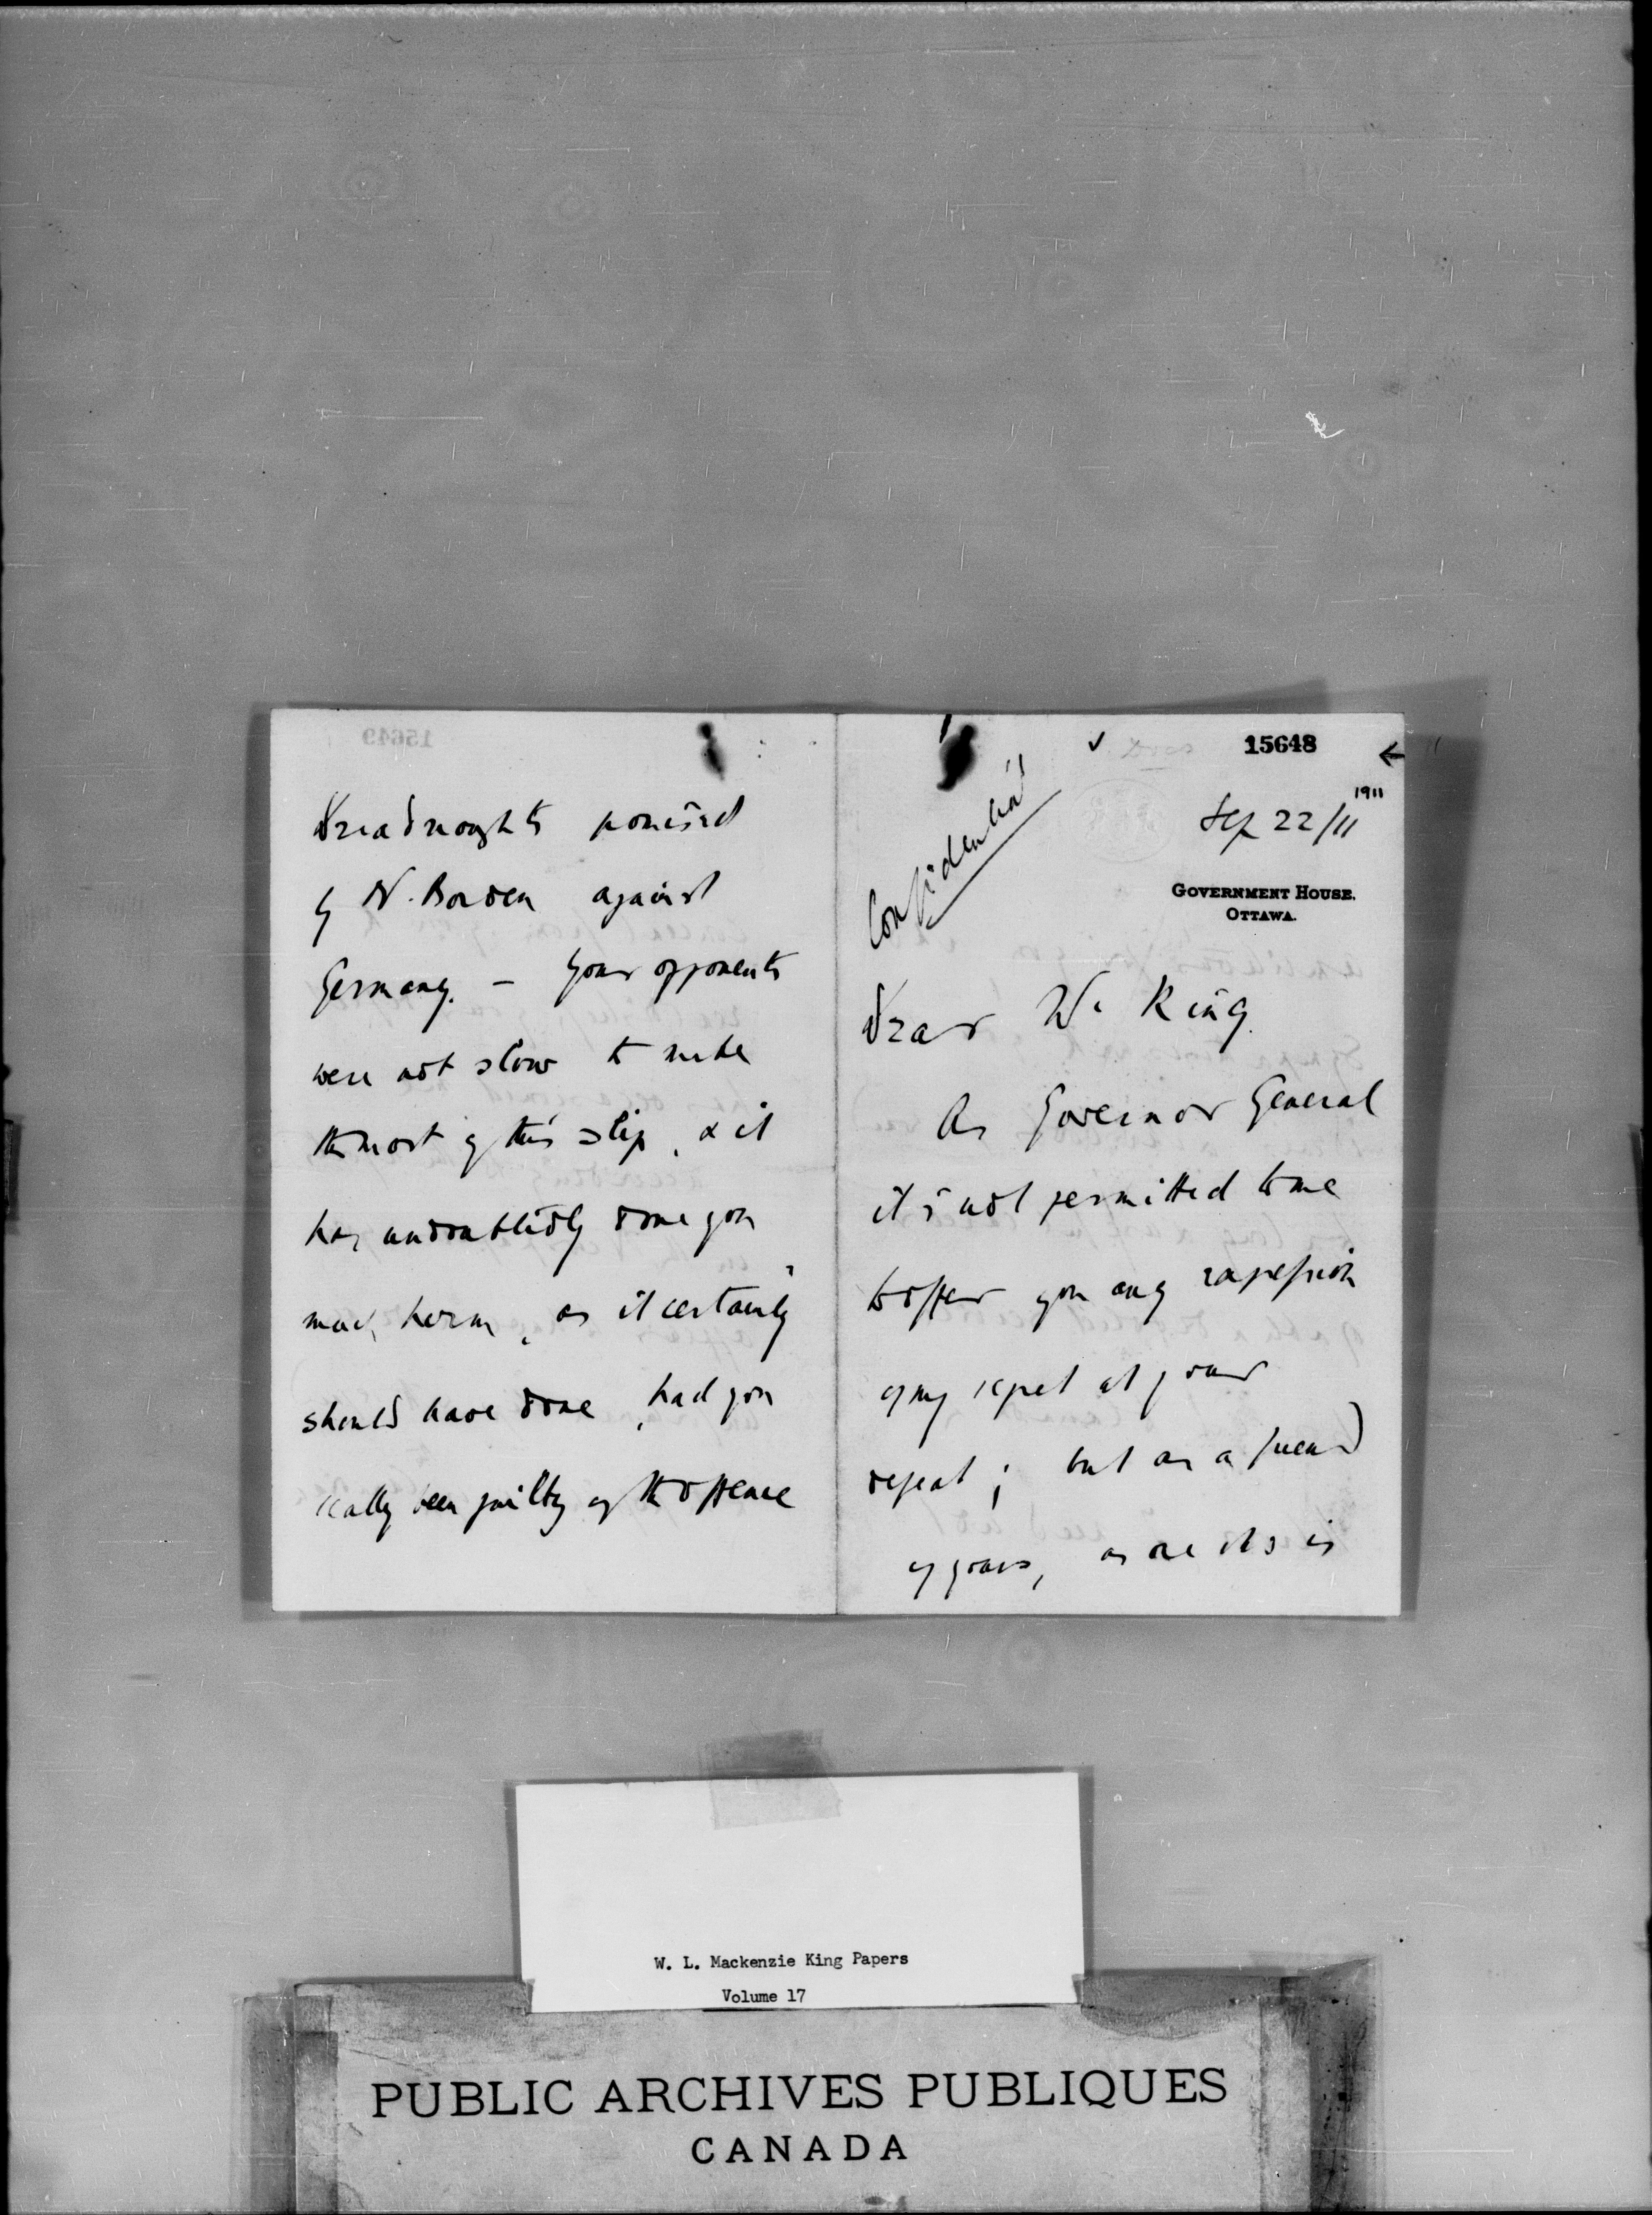 15649
Dreadnoughts promised
by Mr. Borden against
Germany. – Your opponents
were not slow to make
the most of this slip, & it
has undoubtedly done you
much harm, as it certainly
should have done, had you
really been guilty of the offence
15648
1911
Sep 22/11
Confidential
GOVERNMENT HOUSE.
OTTAWA.
Dear Mr King.
As Governor General
it is not permitted to me
to offer you any expression
of my regret at your
defeat; but as a friend
of yours, as one who is
W. L. Mackenzie King Papers
Volume 17
PUBLIC ARCHIVES PUBLIQUES
CANADA